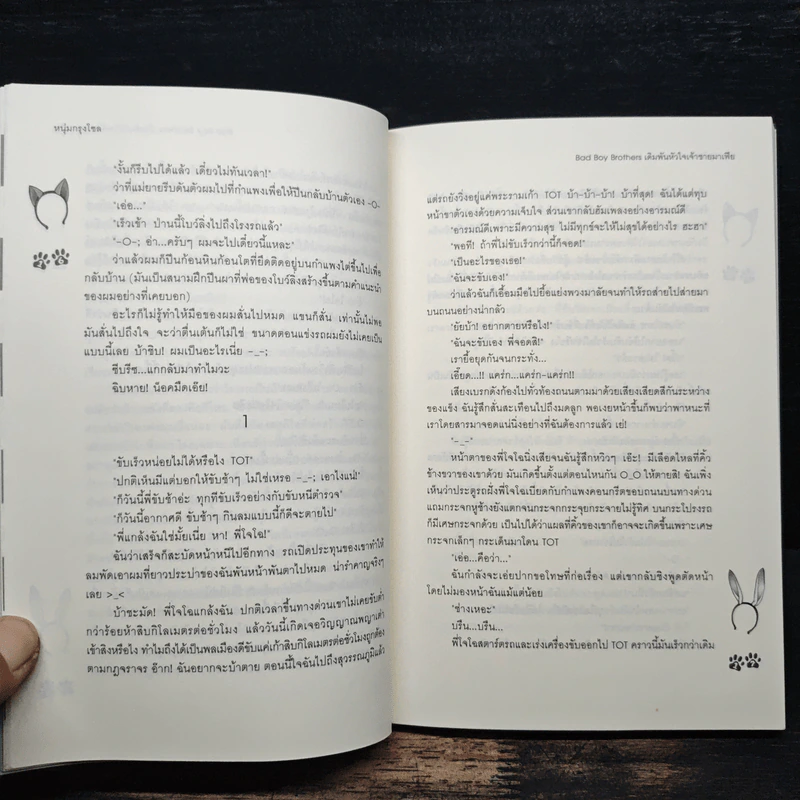 หนุ่มกรุงโซล
"งั้นก็รีบไปได้แล้ว เดี๋ยวไม่ทันเวลา!"
ว่าที่แม่ยายรีบดันตัวผมไปที่กำแพงเพื่อให้ปีนกลับบ้านตัวเอง -O-
"เอ่อ..."
"เร็วเข้า ป่านนี้โบว์ลิ่งไปถึงโรงรถแล้ว"
"-O-; อ่า...ครับๆ ผมจะไปเดี๋ยวนี้แหละ"
ว่าแล้วผมก็ปีนก้อนหินก้อนโตที่ยึดติดอยู่บนกำแพงไต่ขึ้นไปเพื่อ
กลับบ้าน (มันเป็นสนามฝึกปีนผาที่พ่อของโบว์ลิ่งสร้างขึ้นตามคำแนะนำ
ของผมอย่างที่เคยบอก)
อะไรก็ไม่รู้ทำให้มือของผมสั่นไปหมด แขนก็สั่น เท่านั้นไม่พอ
มันสั่นไปถึงใจ จะว่าตื่นเต้นก็ไม่ใช่ ขนาดตอนแข่งรถผมยังไม่เคยเป็น
แบบนี้เลย บ้าชิบ! ผมเป็นอะไรเนี่ย -_-;
ซีบรีซ...แกกลับมาทำไมวะ
ฉิบหาย! น็อคมืดเอ๊ย!
1
"ขับเร็วหน่อยไม่ได้หรือไง TOT"
"ปกติเห็นมีแต่บอกให้ขับช้าๆ ไม่ใช่เหรอ -_-; เอาไงแน่!"
"ก็วันนี้พี่ขับช้าอ่ะ ทุกทีขับเร็วอย่างกับขับหนีตำรวจ"
"ก็วันนี้อากาศดี ขับช้าๆ กินลมแบบนี้ก็ดีจะตายไป"
"พี่แกล้งฉันใช่มั้ยเนี่ย หา! พี่โจโฉ!"
ฉันว่าเสร็จก็สะบัดหน้าหนีไปอีกทาง รถเปิดประทุนของเขาทำให้
ลมพัดเอาผมที่ยาวประบ่าของฉันพันหน้าพันตาไปหมด น่ารำคาญจริงๆ
เลย >_<
บ้าชะมัด! พี่โจโฉแกล้งฉัน ปกติเวลาขึ้นทางด่วนเขาไม่เคยขับต่ำ
กว่าร้อยห้าสิบกิโลเมตรต่อชั่วโมง แล้ววันนี้เกิดเจอวิญญาณพญาเต่า
เข้าสิงหรือไง ทำไมถึงได้เป็นพลเมืองดีขับแค่เก้าสิบกิโลเมตรต่อชั่วโมงถูกต้อง
ตามกฎจราจร อ๊าก! ฉันอยากจะบ้าตาย ตอนนี้ใจฉันไปถึงสุวรรณภูมิแล้ว
Bad Boy Brothers เดิมพันหัวใจเจ้าชายมาเฟีย
แต่รถยังวิ่งอยู่แค่พระรามเก้า TOT บ้า-บ้า-บ้า! บ้าที่สุด! ฉันได้แต่ทุบ
หน้าขาตัวเองด้วยความเจ็บใจ ส่วนเขากลับฮัมเพลงอย่างอารมณ์ดี
"อารมณ์ดีเพราะมีความสุข ไม่มีทุกข์จะให้ไม่สุขได้อย่างไร ฮะฮ่า"
"พอที! ถ้าพี่ไม่ขับเร็วกว่านี้ก็จอด!"
"เป็นอะไรของเธอ!"
"ฉันจะขับเอง!"
ว่าแล้วฉันก็เอื้อมมือไปยื้อแย่งพวงมาลัยจนทำให้รถส่ายไปส่ายมา
บนถนนอย่างน่ากลัว
"ยัยบ้า! อยากตายหรือไง!"
"ฉันจะขับเอง พี่จอดสิ!"
เรายื้อยุดกันจนกระทั่ง...
เอี๊ยด...!! แคร่ก...แคร่ก-แคร่ก!!
เสียงเบรกดังก้องไปทั่วท้องถนนตามมาด้วยเสียงเสียดสีกันระหว่าง
ของแข็ง ฉันรู้สึกสั่นสะเทือนไปถึงมดลูก พอเงยหน้าขึ้นก็พบว่าพาหนะที่
เราโดยสารมาจอดแน่นิ่งอย่างที่ฉันต้องการแล้ว เย่!
"-_-"
หน้าตาของพี่โจโฉนิ่งเสียจนฉันรู้สึกหวิวๆ เอ๊ะ! มีเลือดไหลที่คิ้ว
ข้างขวาของเขาด้วย มันเกิดขึ้นตั้งแต่ตอนไหนกัน O_O ให้ตายสิ! ฉันเพิ่ง
เห็นว่าประตูรถฝั่งพี่โจโฉเบียดกับกำแพงคอนกรีตขอบถนนบนทางด่วน
แถมกระจกหูช้างยังแตกจนกระจกกระจุยกระจายไม่รู้ทิศ บนกระโปรงรถ
ก็มีเศษกระจกด้วย เป็นไปได้ว่าแผลที่คิ้วของเขาก็อาจจะเกิดขึ้นเพราะเศษ
กระจกเล็กๆ กระเด็นมาโดน TOT
"เอ่อ...คือว่า..."
ฉันกำลังจะเอ่ยปากขอโทษที่ก่อเรื่อง แต่เขากลับชิงพูดตัดหน้า
โดยไม่มองหน้าฉันแม้แต่น้อย
"ช่างเหอะ"
บรืน...บรืน...
พี่โจโฉสตาร์ตรถและเร่งเครื่องขับออกไป TOT คราวนี้มันเร็วกว่าเดิม